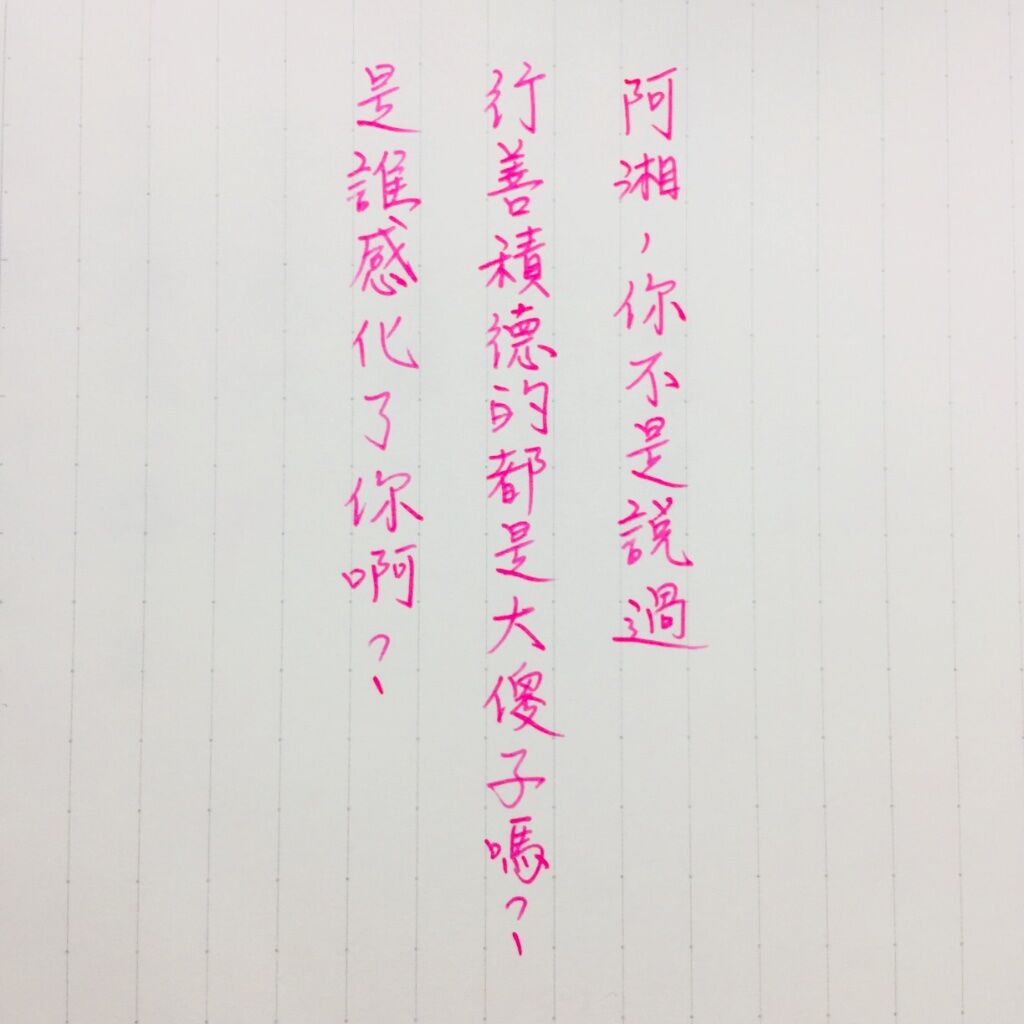 阿湘，你不是說過
行善積德的都是大傻子嗎？
是誰感化了你啊？